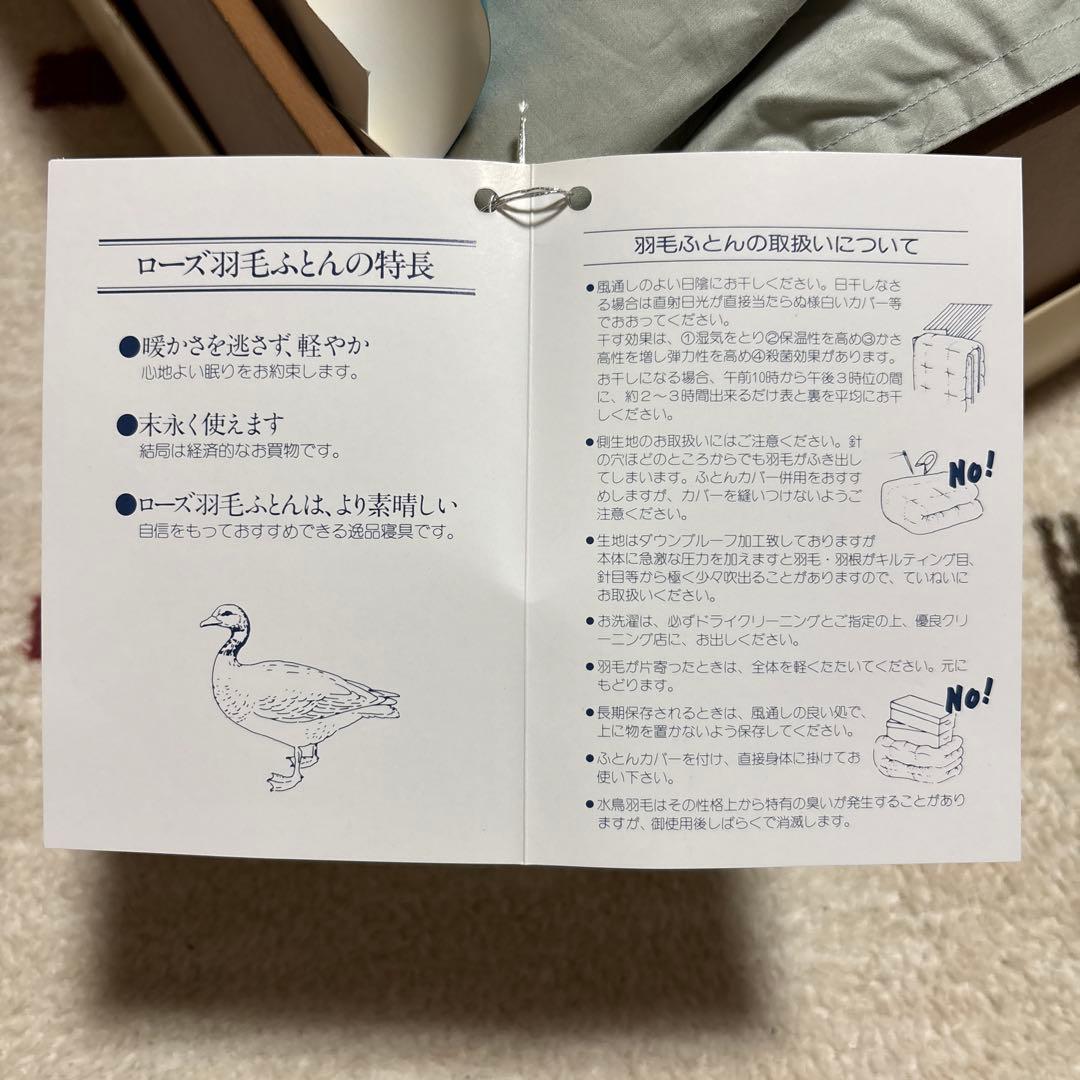 ローズ羽毛ふとんの特長
●暖かさを逃さず、軽やか
心地よい眠りをお約束します。
●末永く使えます
結局は経済的なお買物です。
●ローズ羽毛ふとんは、より素晴しい
自信をもっておすすめできる逸品寝具です。
羽毛ふとんの取扱いについて
●風通しのよい日陰にお干しください。日干しなさ
る場合は直射日光が直接当たらぬ様白いカバー等
でおおってください。
干す効果は、①湿気をとり②保温性を高め③かさ
高性を増し弾力性を高め④殺菌効果があります。
お干しになる場合、午前10時から午後3時位の間
に、約2〜3時間出来るだけ表と裏を平均にお干
しください。
●側生地のお取扱いにはご注意ください。針
の穴ほどのところからでも羽毛がふき出し
てしまいます。ふとんカバー併用をおすす
めしますが、カバーを縫いつけないようご
注意ください。
NO!
●生地はダウンプルーフ加工致しておりますが
本体に急激な圧力を加えますと羽毛・羽根がキルティング目、
針目等から極く少々吹出ることがありますので、ていねいに
お取扱いください。
●お洗濯は、必ずドライクリーニングとご指定の上、優良クリ
ーニング店に、お出しください。
●羽毛が片寄ったときは、全体を軽くたたいてください。元に
もどります。
●長期保存されるときは、風通しの良い処で、
上に物を置かないよう保存してください。
NO!
●ふとんカバーを付け、直接身体に掛けてお
使い下さい。
●水鳥羽毛はその性格上から特有の臭いが発生することがあり
ますが、御使用後しばらくで消滅します。